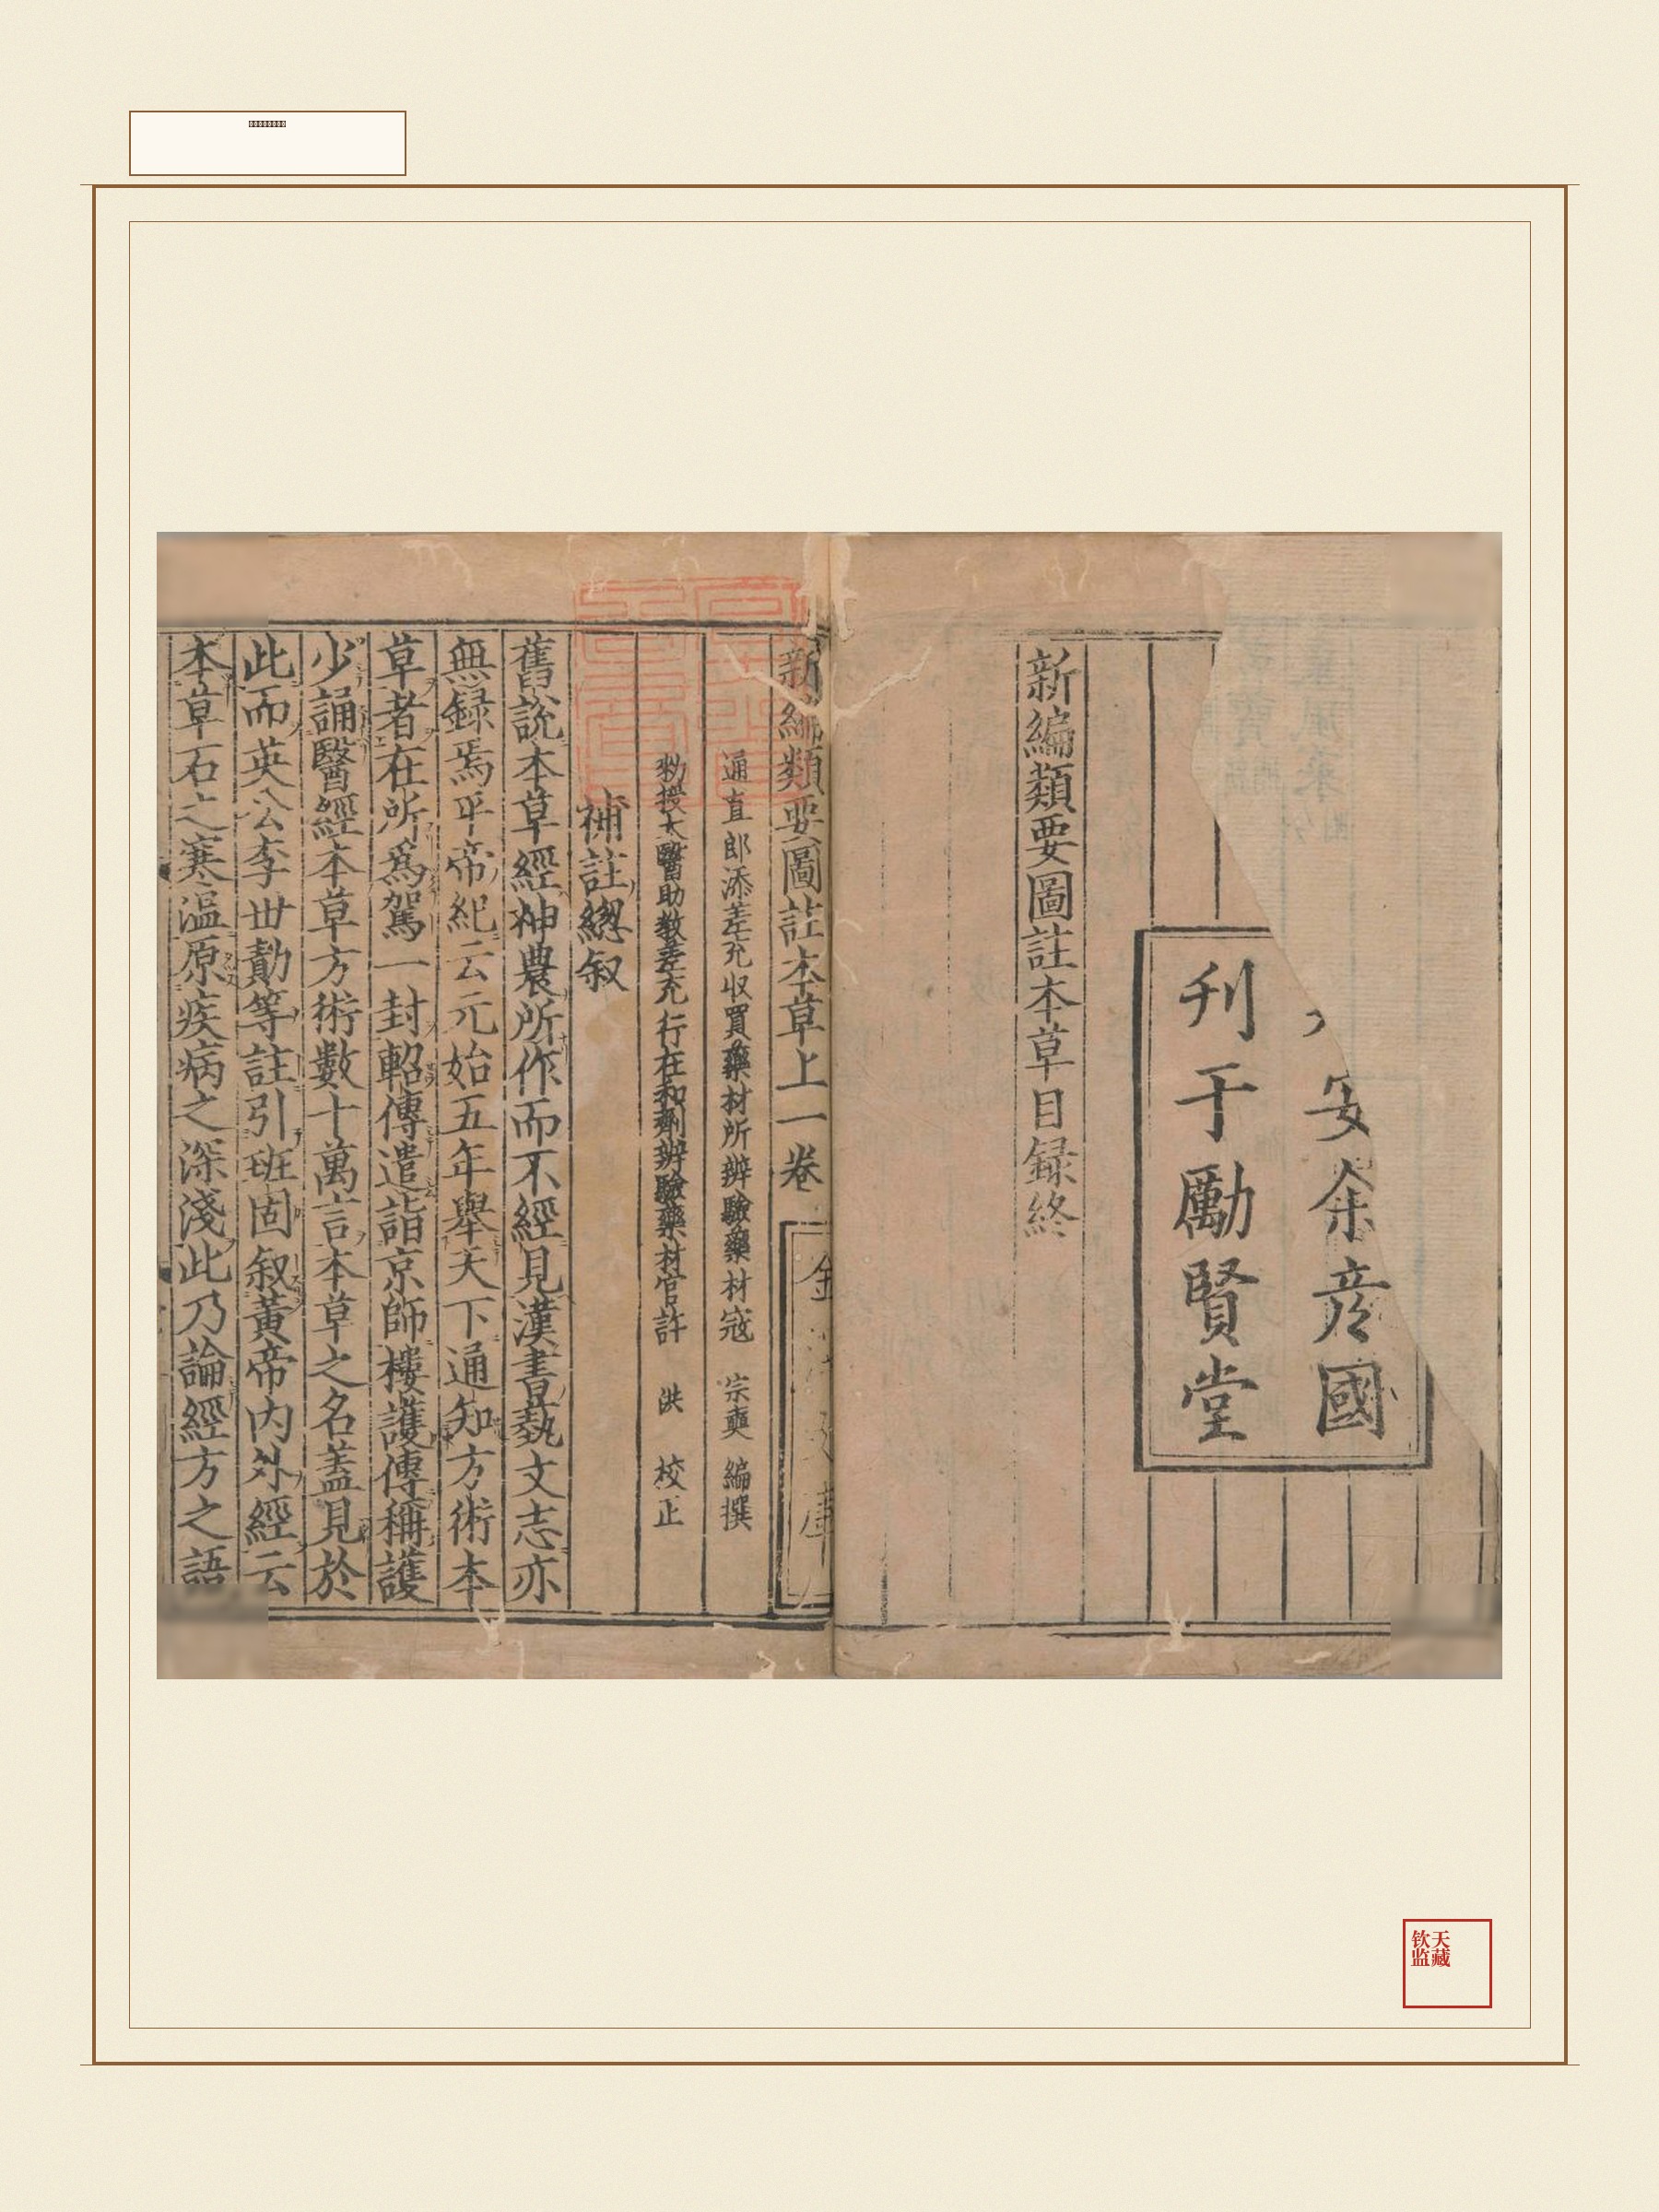 安余彦國
刊于勵賢堂
新編類要圖註本草目録終
新編類要圖註本草上一卷
金澤文庫
通直郎添差充収買藥材所辨驗藥材寇 宗奭 編撰
勑授太醫助教差充行在和劑辨驗藥材官許 洪 校正
補註緫叙
舊説本草經神農所作而不經見漢書藝文志亦
無録焉平帝紀云元始五年舉天下通知方術本
草者在所爲駕一封軺傳遣詣京師樓護傳稱護
少誦醫經本草方術數十萬言本草之名蓋見於
此而英公李世勣等註引班固叙黄帝内外經云
本草石之寒温原疾病之深淺此乃論經方之語
钦天
监藏